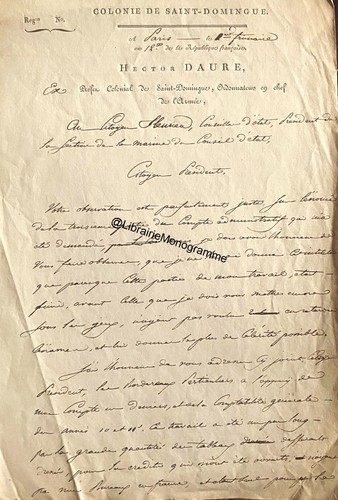 COLONIE DE SAINT-DOMINGUE.
Regre No.
à Paris le 2me frimaire
an 12me de la République française
HECTOR DAURE,
Ex Préfet Colonial de Saint-Domingue, Ordonnateur en chef
de l'Armée,
Au Citoyen Fleurieu, Conseiller d'état, Président de
la Section de la marine du Conseil d'état,
Citoyen Président,
Votre observation est parfaitement juste sur
de la compte administratif qui m'a
été demandé je dois avoir l'honneur de
vous faire observer, que je
que parceque cette partie de mon travail, etait
finie, avant celle que je dois vous mettre encore
sous les yeux, n'ayant pas voulu en retarder
l'examen, et lui donner le plus de célérité possible.
J'ai l'honneur de vous adresser cy joint citoyen
Président, les bordereaux Particuliers à l'appuy de
mon Compte en deniers, et de la comptabilité générale
des années 10 et 11. Ce travail a été un peu long
par la grande quantité de tableaux
pour les crédits qui m'ont été ouverts,
mes Bureaux en france, et
@LibrairieMonogramme